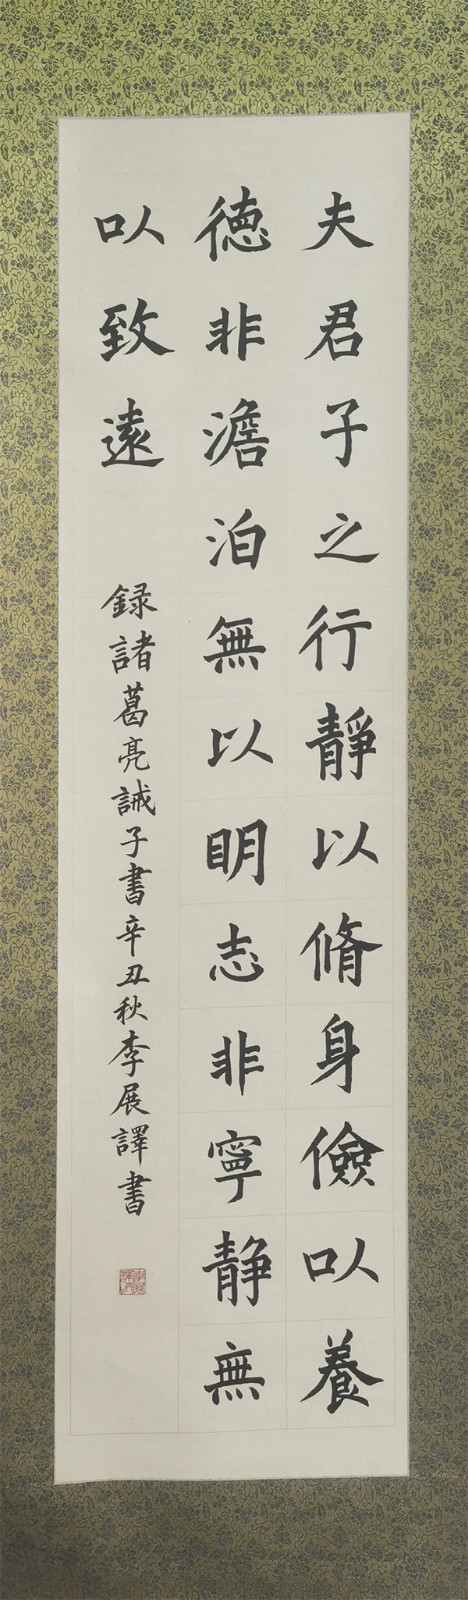 夫君子之行靜以脩身儉以養
德非澹泊無以明志非寧靜無
以致遠
録諸葛亮誡子書辛丑秋李展譯書